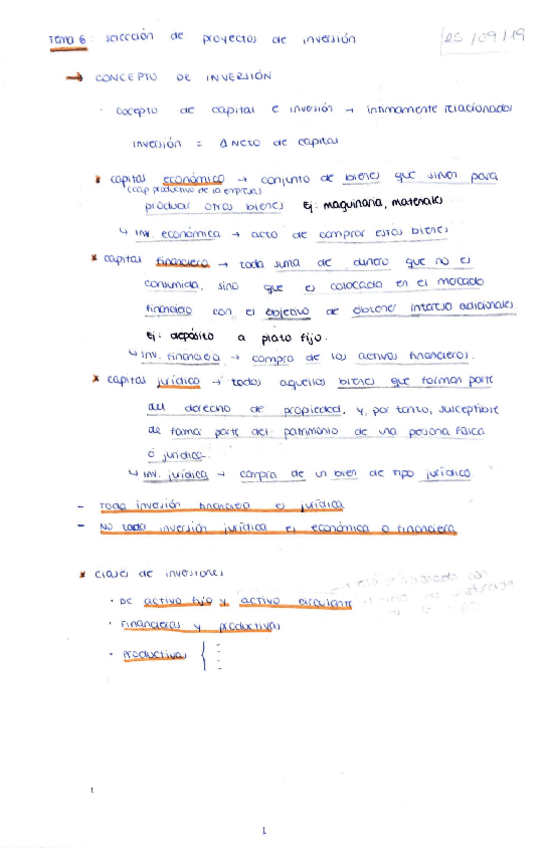 Tema 6: selección de proyectos de inversión
25/09/19
→ CONCEPTO DE INVERSIÓN
· cocepto de capital e inversión → íntimamente relacionados
inversión = Δ neto de capital
* capital económico → conjunto de bienes que sirven para
(cap productivo de la empresa)
producir otros bienes Ej: maquinaria, materiales
↳ inv. económica → acto de comprar estos bienes
* capital financiero → toda suma de dinero que no es
consumida, sino que es colocada en el mercado
financiero con el objetivo de obtener intereses adicionales
Ej: depósito a plazo fijo.
↳ inv. financiera → compra de los activos financieros.
* capital jurídico → todos aquellos bienes que forman parte
del derecho de propiedad, y, por tanto, susceptible
de formar parte del patrimonio de una persona física
o jurídica.
↳ inv. jurídica → compra de un bien de tipo jurídico
- Toda inversión financiera es jurídica
- NO toda inversión jurídica es económica o financiera
* Clases de inversiones
· DE activo fijo y activo circulante
· Financieras y productivas
· Productivas {
1